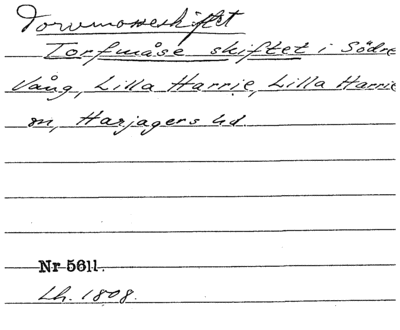 Torvmosseskiftet
Torfmåse skiftet i Södre
Vång, Lilla Harrie, Lilla Harrie
sn, Harjagers hd
Nr 5611.
Lh. 1808.